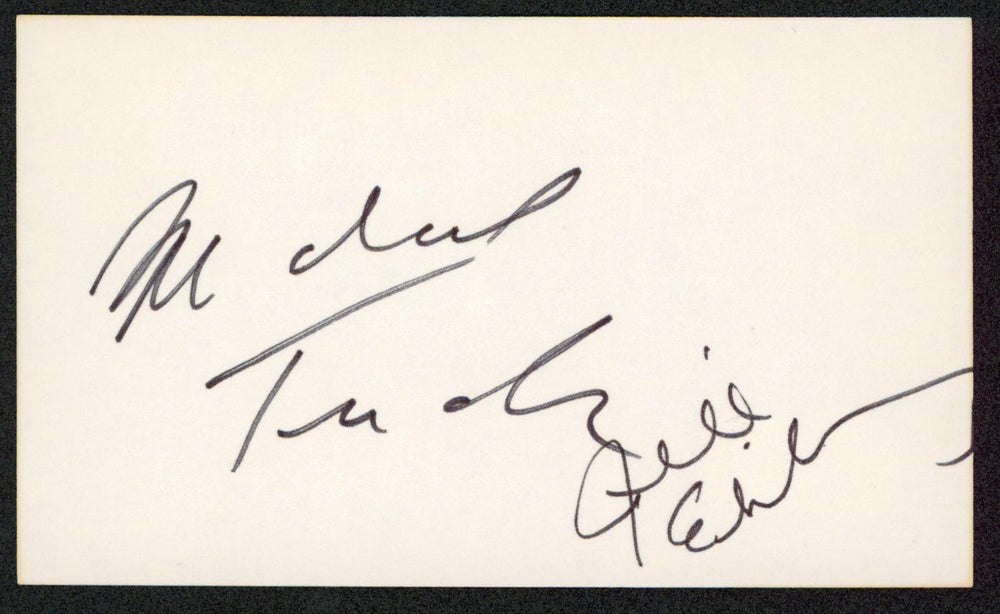 Michael
Tucker
Jill
Eikenberry